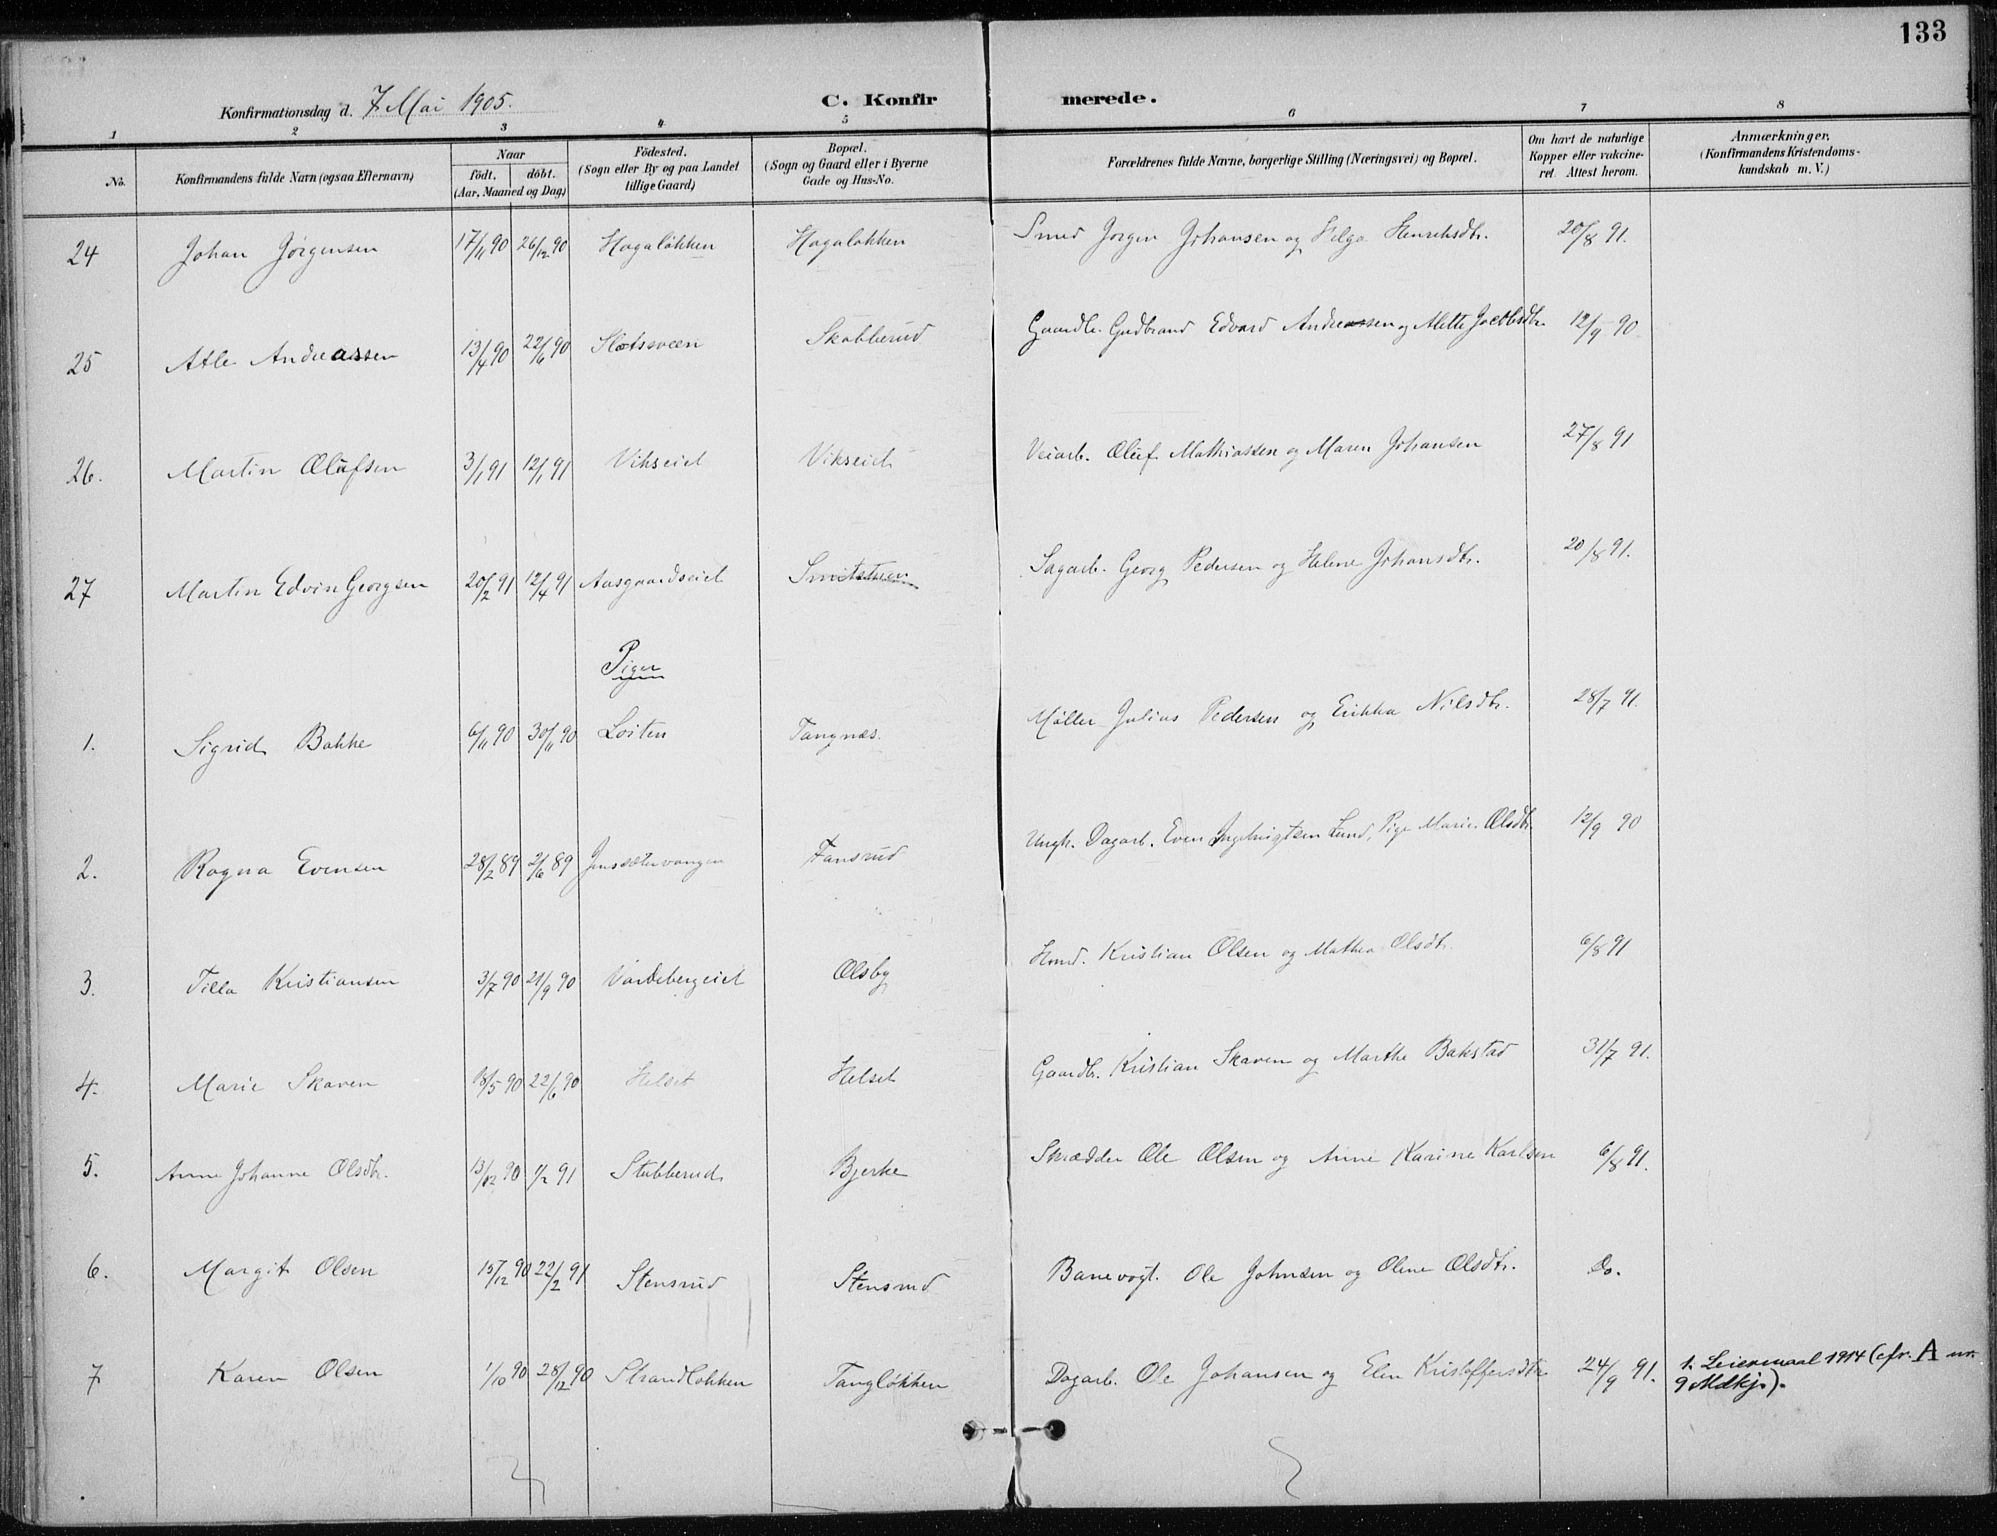 133
Konfirmationsdag d. 7 Mai 1905. C. Konfirmerede.
1 2 3 4 5 6 7 8
No. Konfirmandens fulde Navn (ogsaa Efternavn) Naar födt. döbt. (Aar, Maaned og Dag) Födested. (Sogn eller By og paa Landet tillige Gaard) Bopæl. (Sogn og Gaard eller i Byerne Gade og Hus-No. Forældrenes fulde Navne, borgerlige Stilling (Næringsvei) og Bopæl. Om havt de naturlige Kopper eller vakcineret. Attest herom. Anmærkninger. (Konfirmandens Kristendomskundskab m. V.)
24 Johan Jörgensen 17/11 90 26/12 90 Hagalökken Hagalökken Smed Jörgen Johansen og Helga Henriksdtr. 20/8 91.
25 Atle Andreassen 13/4 90 22/6 90 Slotssveen Skabberud Gaardbr. Gudbrand Edvard Andreassen og Alette Jacobsdtr. 12/9 90.
26. Martin Olufsen 3/1 91 12/1 91 Vikseiet Vikseiet Veiarb. Oluf Mathiassen og Maren Johansen 27/8 91
27 Martin Edvin Georgsen 20/2 91 12/4 91 Aasgaardseiet Sagarb. Georg Pedersen og Helene Johansdtr. 20/8 91.
Piger
1. Sigrid Bakke 6/11 90 30/11 90 Löiten Tangnæs. Möller Julius Pedersen og Erikka Nilsdtr. 28/7 91.
2. Ragna Evensen 28/2 89 2/6 89 Jenssætervangen Fansrud Ungk. Dagarb. Even Ingebrigtsen Lund, Pige Marie Olsdtr. 12/9 90
3. Tilla Kristiansen 3/7 90 21/9 90 Vardebergeiet Olsby Hmd. Kristian Olsen og Mathea Olsdtr. 6/8 91
4. Marie Skaven 18/5 90 22/6 90 Helset Helset Gaardbr. Kristian Skaven og Marthe Bakstad 31/7 91.
5. Anne Johanne Olsdtr. 13/12 90 1/2 91 Stubberud Bjerke Skrædder Ole Olsen og Anne Karine Karlsen 6/8 91.
6. Margit Olsen 15/12 90 22/2 91 Stensrud Stensrud Banevogt. Ole Johnsen og Oline Olsdtr. Do.
7 Karen Olsen 1/10 90 28/12 90 Strandlökken Tanglökken Dagarb. Ole Johansen og Elen Kristoffersdtr 24/9 91. 1. Leiermaal 1914 (cfr. A nr. 9 Mdkj.).